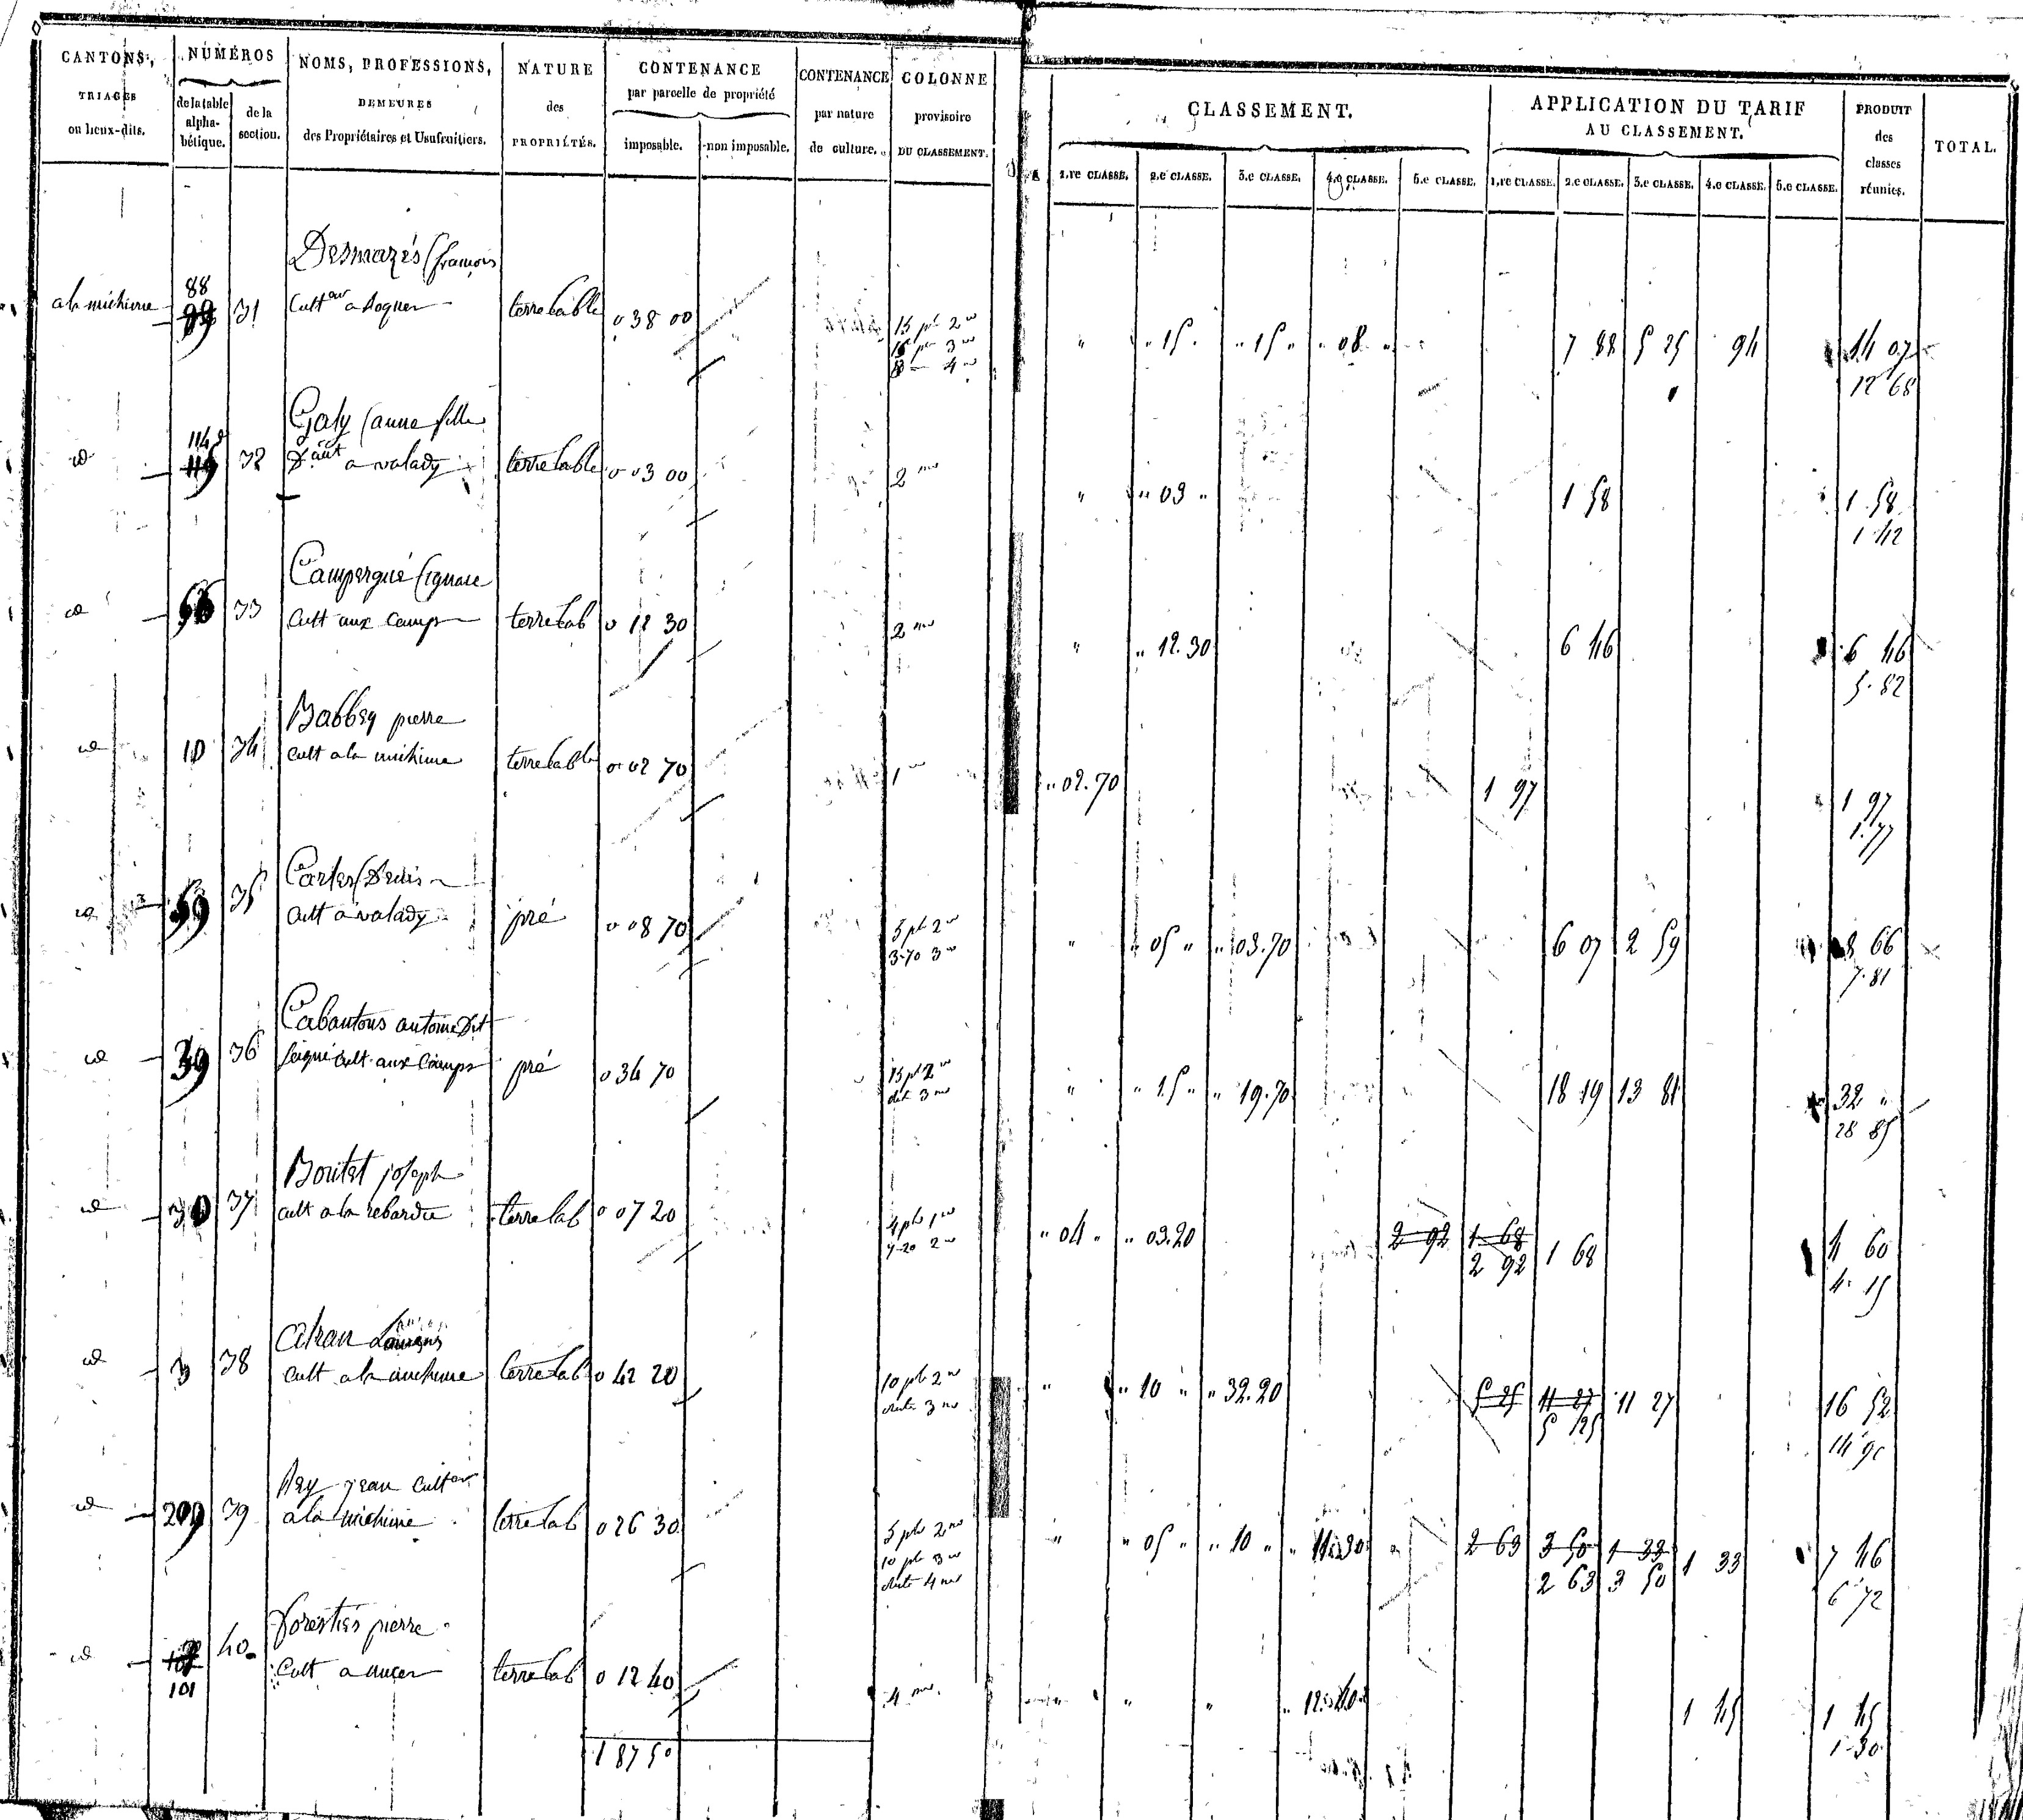 CANTONS, TRIAGES ou lieux-dits.
NUMÉROS
de la table alphabétique.
de la section.
NOMS, PROFESSIONS, DEMEURES des Propriétaires et Usufruitiers.
NATURE des PROPRIÉTÉS.
CONTENANCE par parcelle de propriété
imposable.
non imposable.
CONTENANCE par nature de culture.
COLONNE provisoire DU CLASSEMENT.
CLASSEMENT.
1.re CLASSE. 2.e CLASSE. 3.e CLASSE. 4.e CLASSE. 5.e CLASSE.
APPLICATION DU TARIF AU CLASSEMENT.
1.re CLASSE. 2.e CLASSE. 3.e CLASSE. 4.e CLASSE. 5.e CLASSE.
PRODUIT des classes réunies.
TOTAL.
Desmazés (françois
88
a la michime 31 Cult.eur a terre lable 0 38 00 15 pl 2me " " 15 " " 15 " " 08 " 7 88 5 25 94 14 07
15 pr 3me
8 4me 12 68
Galy (anne fille
114
id 32 a valady terre lable 0 03 00 2me " " 03 " 1 58 1 58
1 42
Campergué (ignace
id 33 Cult aux camps terre lab 0 12 30 2me " " 12.30 6 46 6 46
5.82
Babbey pierre
id 10 34 cult a la michime terre lable 0 02 70 1re " 02.70 1 97 1 97
1.77
Carles (Denis
id 59 35 Cult a valady pré 0 08 70 5 pl 2me " " 05 " " 03.70 6 07 2 59 8 66
3-70 3me 7.81
Cabantous antoine dit
id 39 36 cult aux camps pré 0 34 70 15 pl 2me " " 15 " " 19.70 18 19 13 81 32 "
3me 28 85
Boutet joseph
id 30 37 cult a la rebardie terre lab 0 07 20 4 pl 1re " 04 " " 03.20 2 92 1 68 1 68 4 60
2me 2 92 4.15
id 3 38 Cult a la michime terre lab 0 42 20 10 pl 2me " " 10 " " 32.20 5 25 11 27 11 27 16 52
3me 5 25
Rey jean cult.eur
id 209 39 a la michime terre lab 0 26 30 5 pl 2me " " 05 " " 10 " " 11.30 2 63 3 50 1 33 1 33 7 46
10 pl 3me 2 63 3 50
4me 6 72
forestiés pierre
id 40 Cult a terre lab 0 12 40 4me " " " " 12.40 1 45 1 45
101 1 30
1 87 50